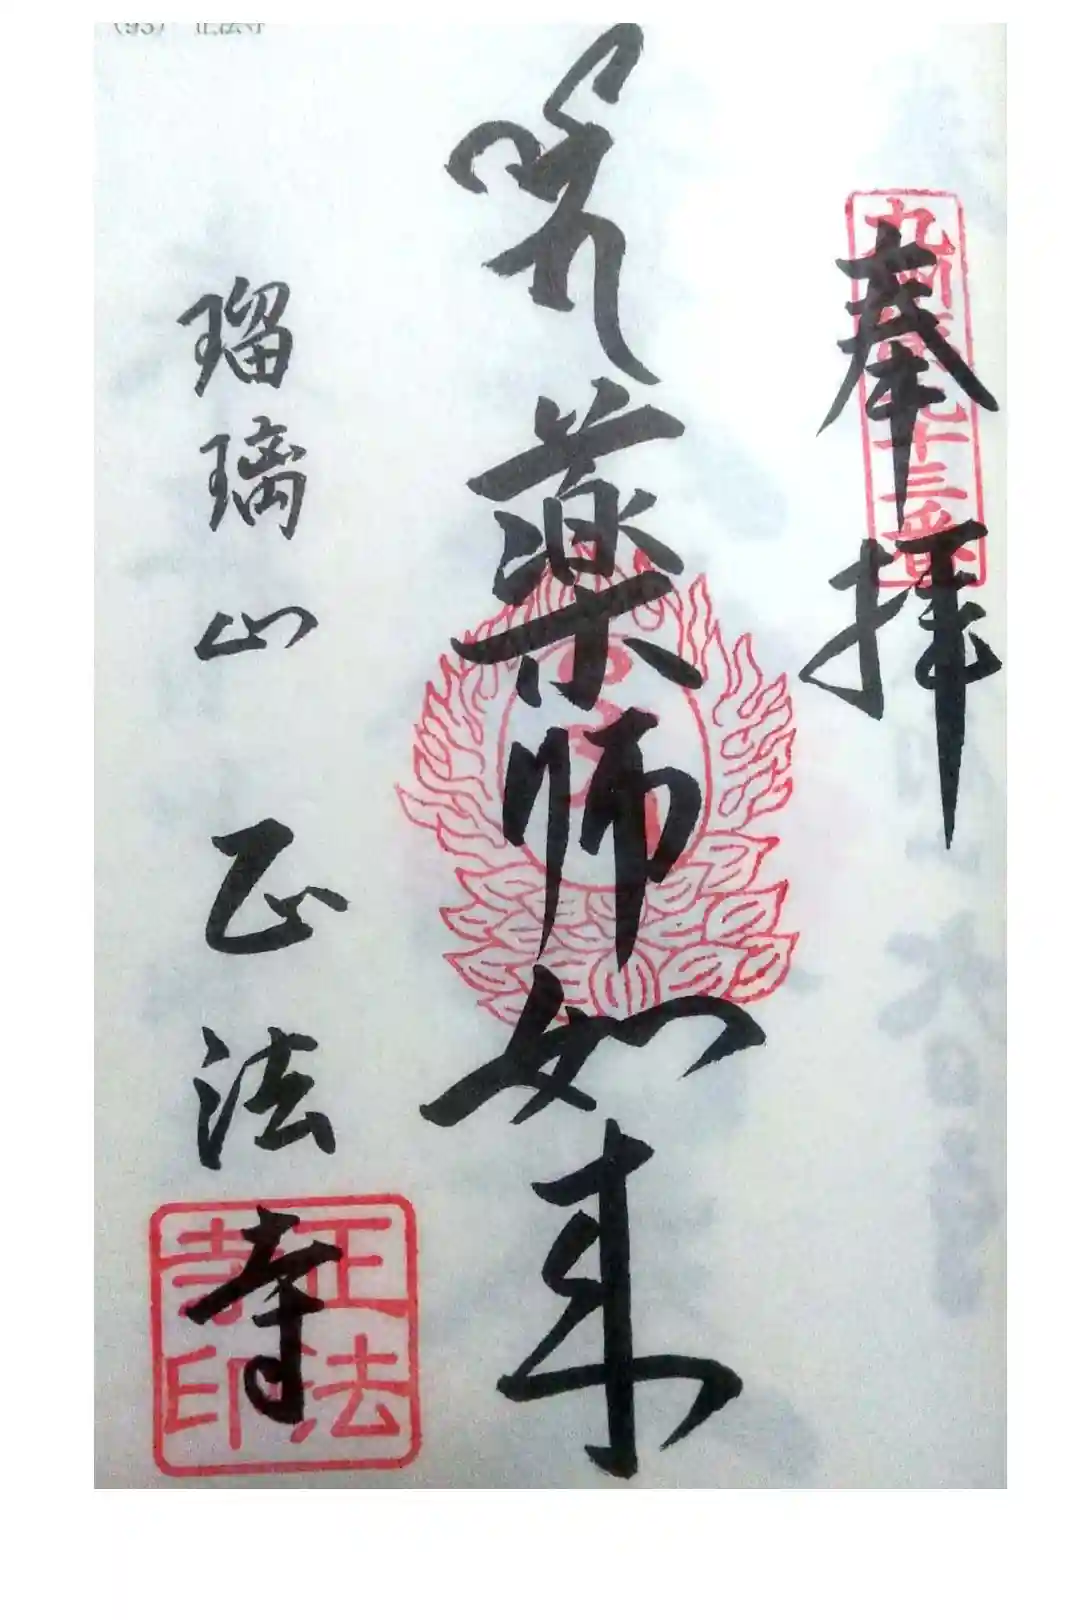 (93) 正法寺
奉拝
九州第九十三番
薬師如来
瑠璃山 正法寺
正法
寺印